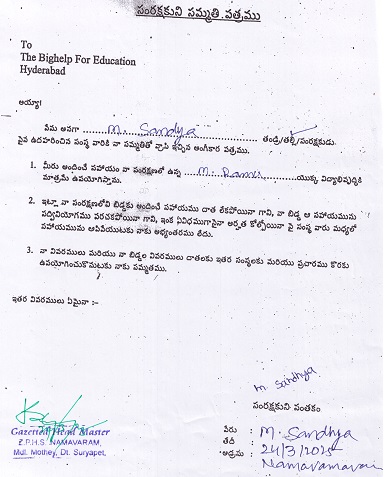 సంరక్షకుని సమ్మతి పత్రము
To
The Bighelp For Education
Hyderabad
అయ్యా!
నేను అనగా M. Sandya తండ్రి/తల్లి/సంరక్షకుడు.
పైన ఉదహరించిన సంస్థ వారికి నా సమ్మతితో వ్రాసి ఇచ్చిన అంగీకార పత్రము.
1. మీరు అందించే సహాయం నా సంరక్షణలో ఉన్న M. Ramu యొక్క విద్యాభివృద్ధికి
మాత్రమే ఉపయోగిస్తాను.
2. ఇట్లా నా సంరక్షణలోని బిడ్డకు అందించే సహాయము దాత లేకపోయినా గాని, నా బిడ్డ ఆ సహాయమును
సద్వినియోగము పరచకపోయినా గాని, ఇంక ఏవిధముగానైనా అర్హత కోల్పోయినా పై సంస్థ వారు మధ్యలో
సహాయమును ఆపివేయుటకు నాకు అభ్యంతరము లేదు.
3. నా వివరములు మరియు నా బిడ్డల వివరములు దాతలకు ఇతర సంస్థలకు మరియు ప్రచారము కొరకు
ఉపయోగించుకొనుటకు నాకు సమ్మతము.
ఇతర వివరములు ఏమైనా :-
M. Sandhya
సంరక్షకుని సంతకం
పేరు : M. Sandhya
తేదీ : 24/3/2025
అడ్రసు : Namavaram
Gazetted Head Master
Z.P.H.S. NAMAVARAM,
Mdl. Mothey, Dt. Suryapet,